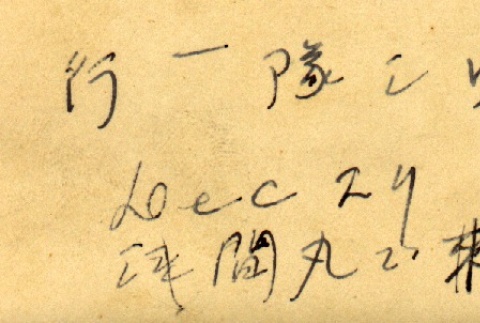 行一隊
Dec 24
浅間丸に来